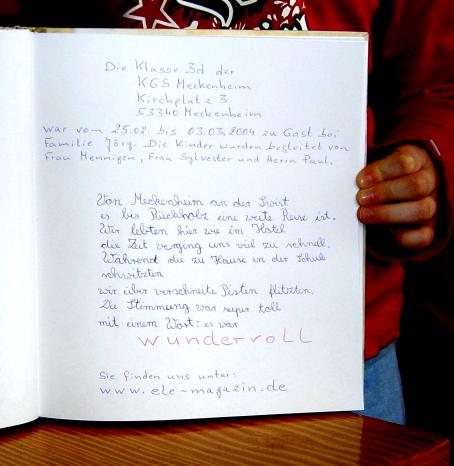 Die Klasse 3d der
KGS Meckenheim
Kirchplatz 3
53340 Meckenheim
war vom 25.02. bis 03.03.2004 zu Gast bei
Familie Jörg. Die Kinder wurden begleitet von
Frau Mennigen, Frau Sylvester und Herrn Paul.
Von Meckenheim an der Swist
es bis Rückholz eine weite Reise ist.
Wir lebten hier wie im Hotel
die Zeit verging uns viel zu schnell.
Während die zu Hause in der Schule
schwitzten
wir über verschneite Pisten flitzten.
Die Stimmung war super toll
mit einem Wort: es war
wundervoll
Sie finden uns unter:
www.ele-magazin.de